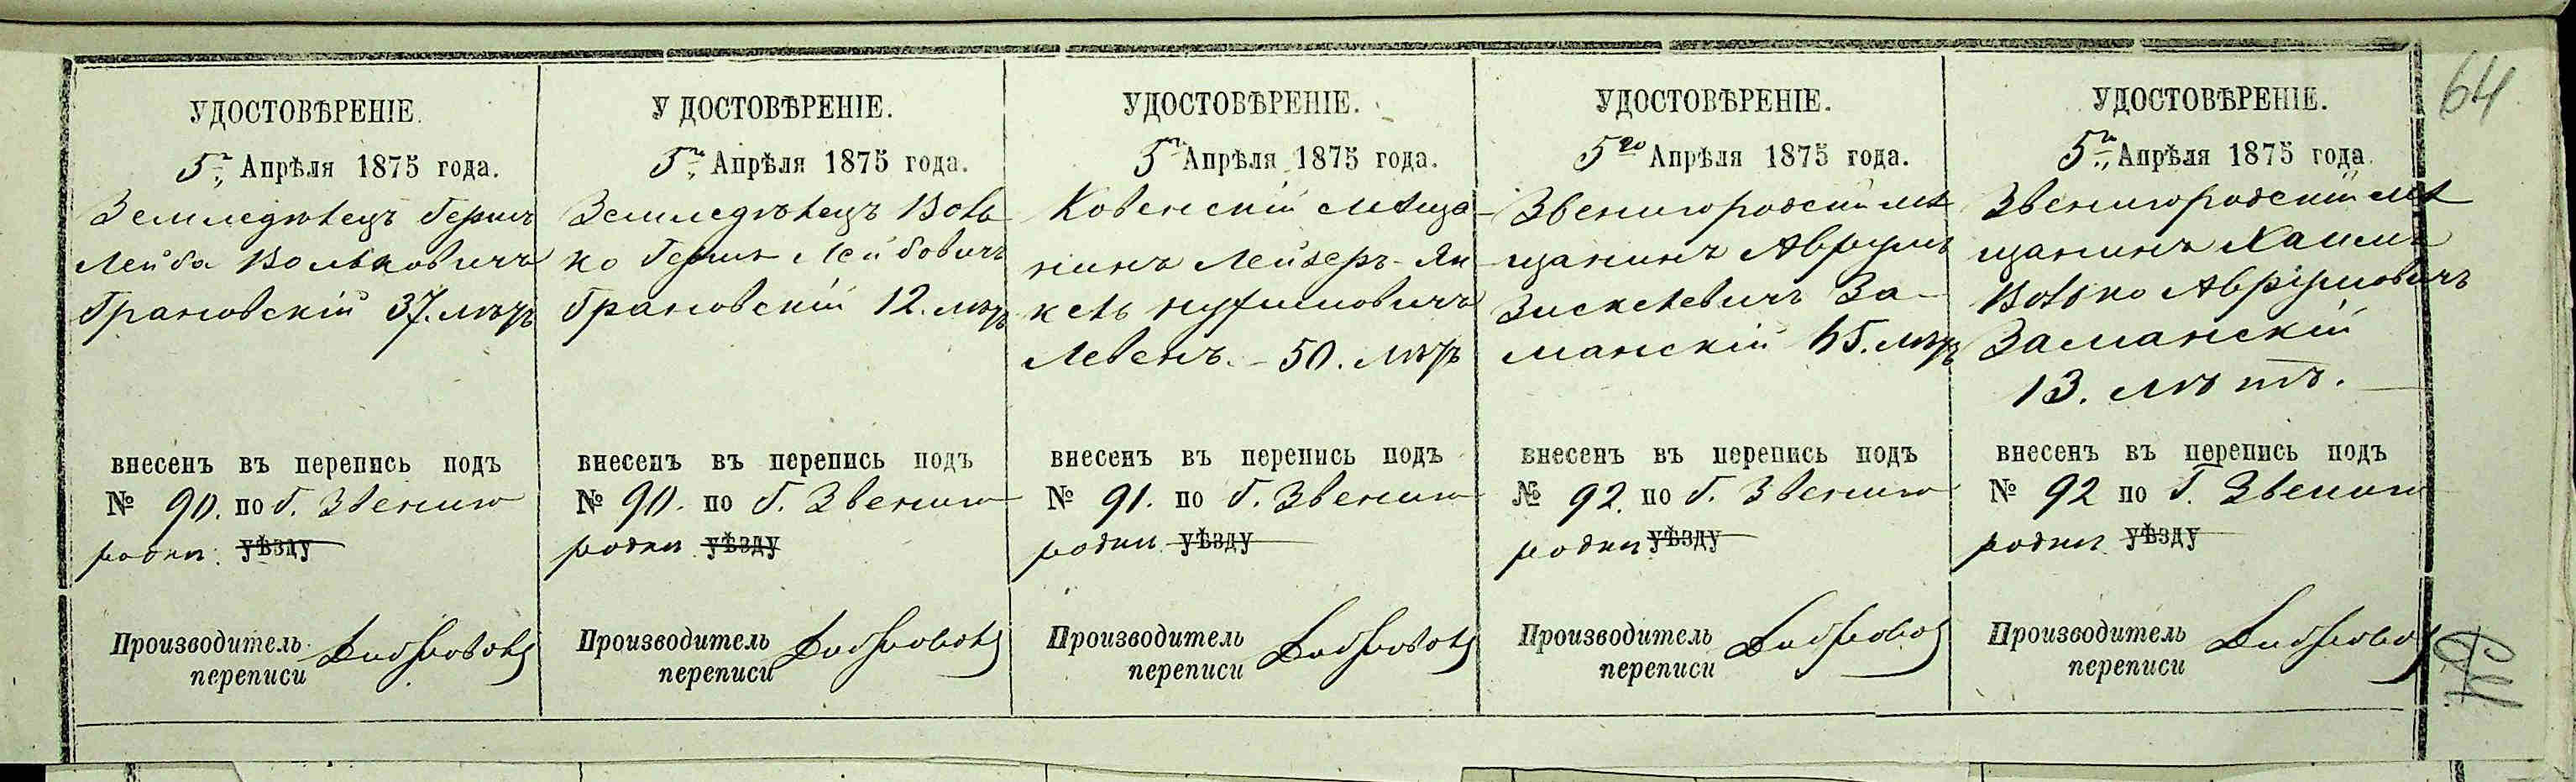 64
УДОСТОВѢРЕНІЕ.
5го Апрѣля 1875 года.
Земледѣлецъ Гершъ
Лейба Вольковичъ
Грановскій 37. лѣтъ
внесенъ въ перепись подъ
№ 90. по г. Звениго
родки уѣзду
Производитель
переписи
У ДОСТОВѢРЕНІЕ.
5го Апрѣля 1875 года.
Земледѣлецъ Воль
ко Гершк Лейбовичъ
Грановскій 12. лѣтъ
внесенъ въ перепись подъ
№ 90. по г. Звениго
родки уѣзду
Производитель
переписи
УДОСТОВѢРЕНІЕ.
5го Апрѣля 1875 года.
Ковенскій мѣща
нинъ Лейзеръ-Ян
кель Нухимовичъ
Левенъ. - 50. лѣтъ
внесенъ въ перепись подъ
№ 91. по г. Звениго
родки уѣзду
Производитель
переписи
УДОСТОВѢРЕНІЕ.
5го Апрѣля 1875 года.
Звенигородскій мѣ
щанинъ Аврумъ
Зискелевичъ За-
манскій 45. лѣтъ
внесенъ въ перепись подъ
№ 92. по г. Звениго
родки уѣзду
Производитель
переписи
УДОСТОВѢРЕНІЕ.
5го Апрѣля 1875 года.
Звенигородскій мѣ
щанинъ Хаимъ
Волько Аврумовичъ
Заманскій
13. лѣтъ.
внесенъ въ перепись подъ
№ 92 по г. Звениго
родки уѣзду
Производитель
переписи